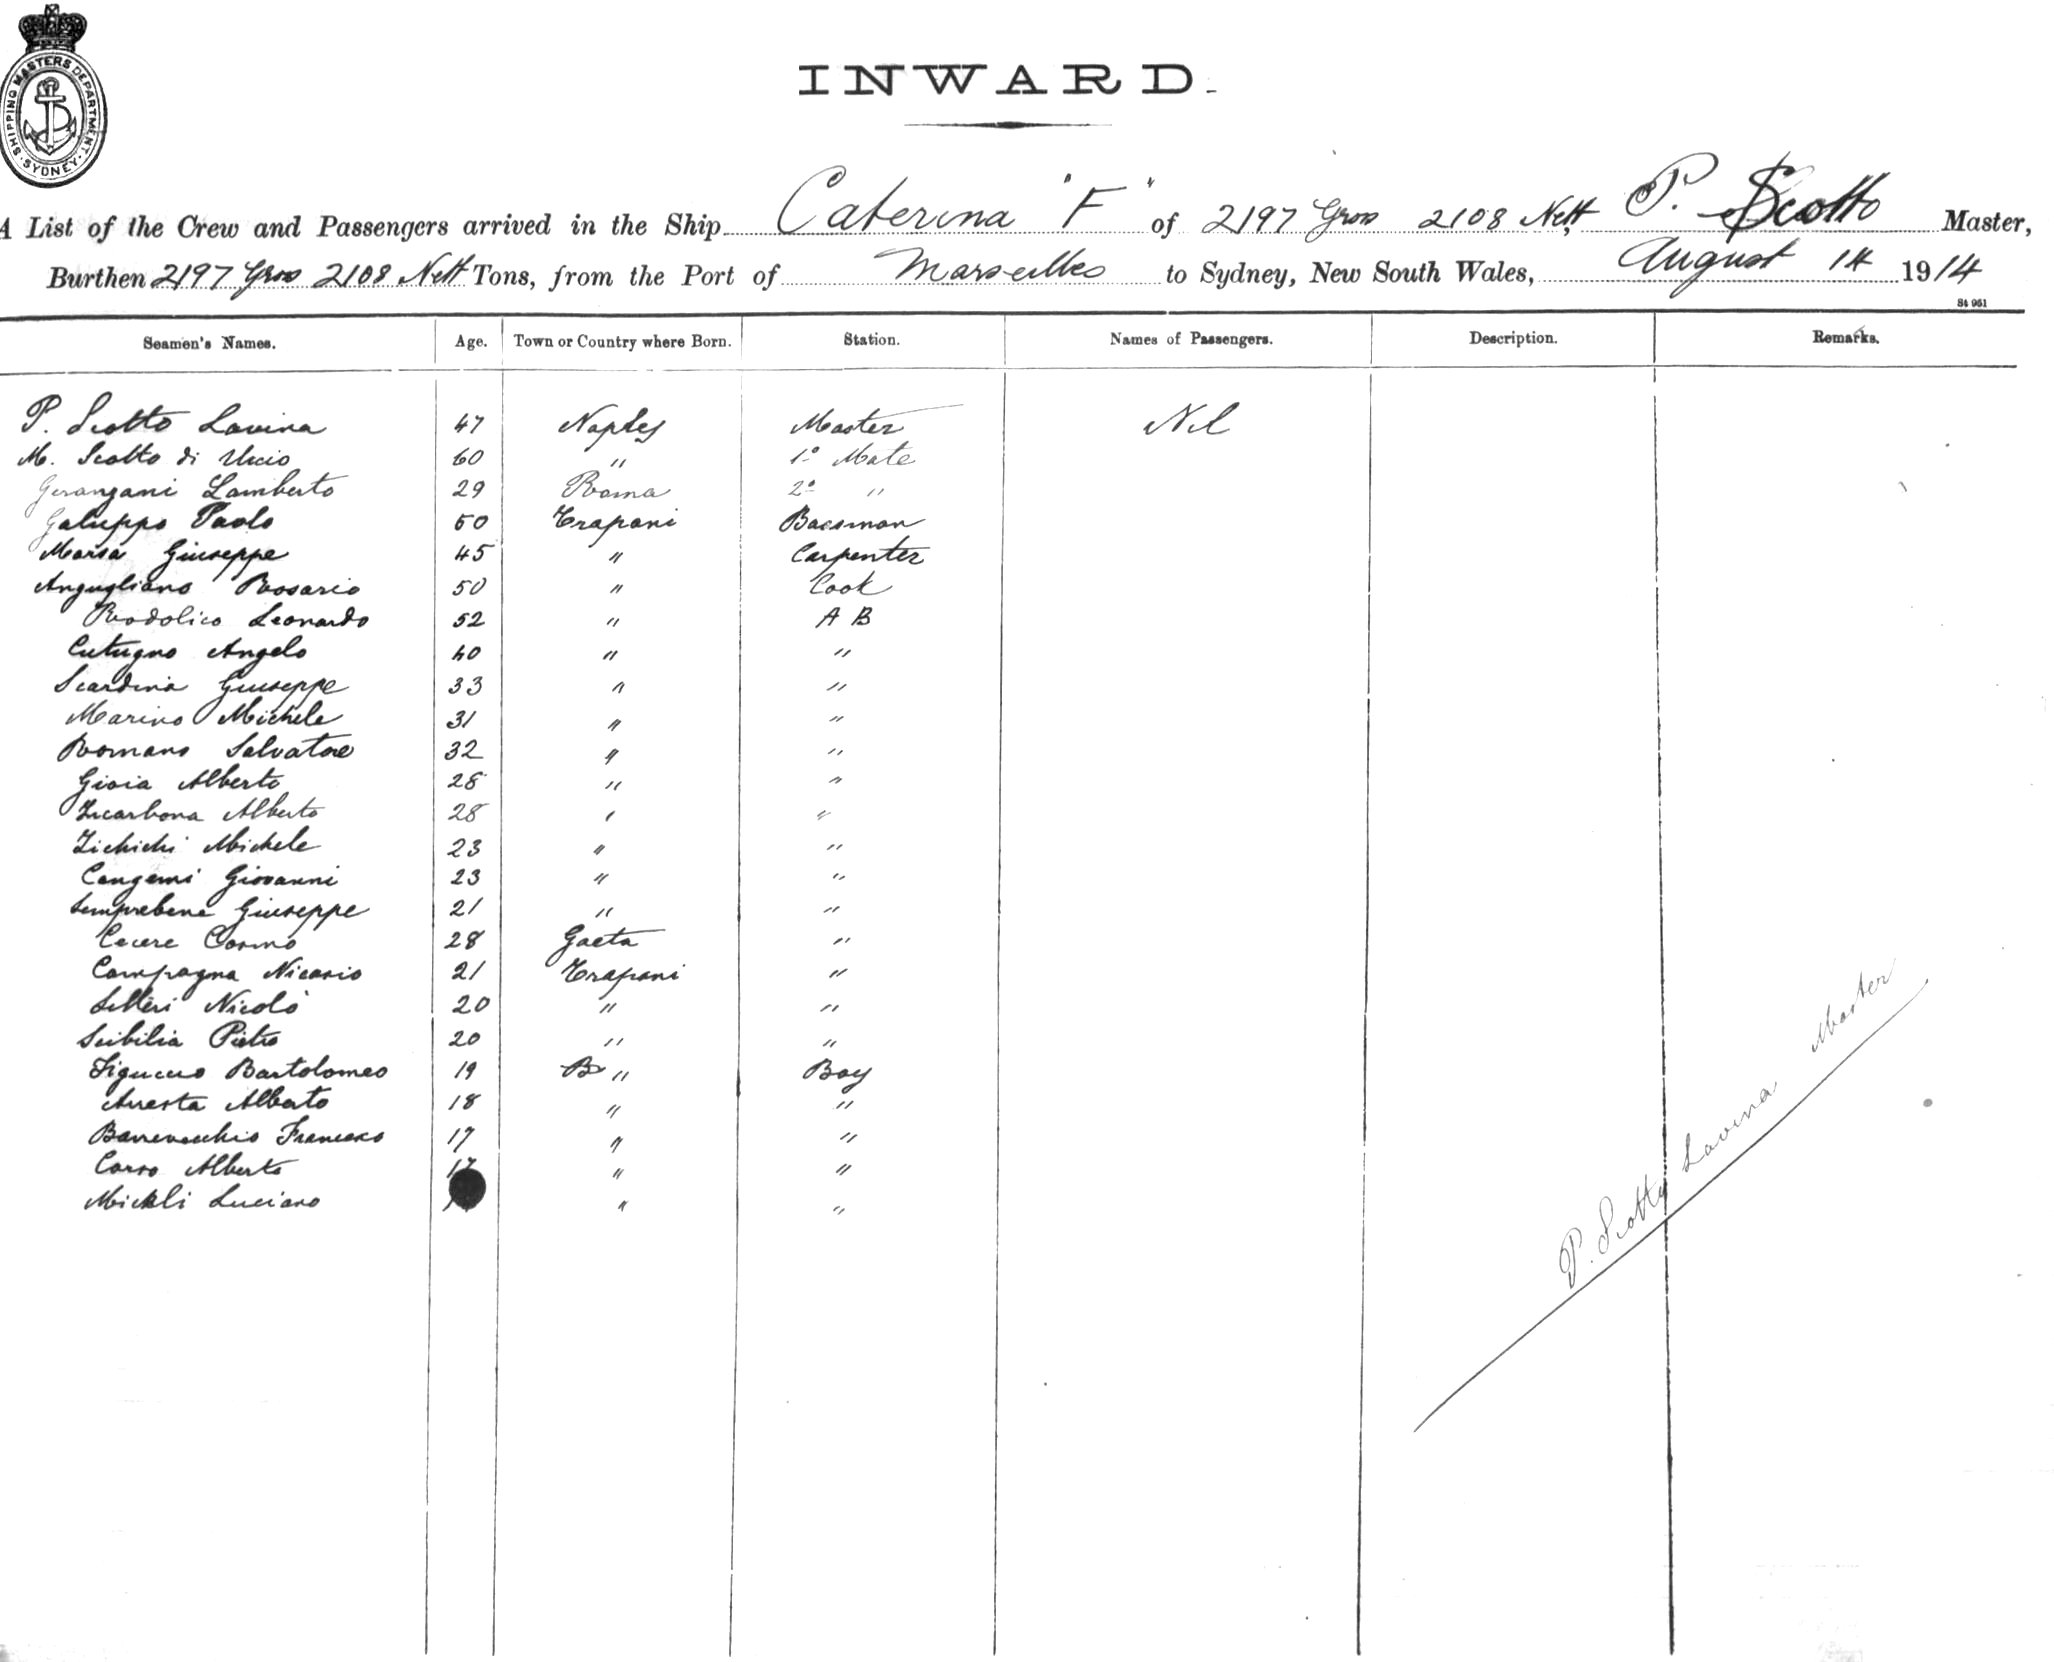 SHIPPING MASTERS DEPARTMENT · SYDNEY ·
INWARD.
A List of the Crew and Passengers arrived in the Ship Caterina "F" of 2197 Gross 2108 Nett, P. Scotto Master,
Burthen 2197 Gross 2108 Nett Tons, from the Port of Marseilles to Sydney, New South Wales, August 14 1914
St 961
Seamen's Names. Age. Town or Country where Born. Station. Names of Passengers. Description. Remarks.
P. Scotto Lavina 47 Naples Master Nil
M. Scotto di 60 " 1º Mate
Lamberto 29 Roma 2º "
Galuppo Paolo 50 Trapani
Marsa Giuseppe 45 " Carpenter
Angugliano Rosario 50 " Cook
Rodolico Leonardo 52 " A B
Cutugno Angelo 40 " "
Scardina Giuseppe 33 " "
Marino Michele 31 " "
Romano Salvatore 32 " "
Gioia Alberto 28 " "
Alberto 28 " "
Zichichi Michele 23 " "
Cangemi Giovanni 23 " "
Semprebene Giuseppe 21 " "
Cecere Cosmo 28 Gaeta "
Campagna Nicasio 21 Trapani "
Nicolò 20 " "
Scibilia Pietro 20 " "
Bartolomeo 19 " Boy
Alberto 18 " "
Francesco 17 " "
Corso Alberto 17 " "
Luciano " "
P. Scotto Lavina Master